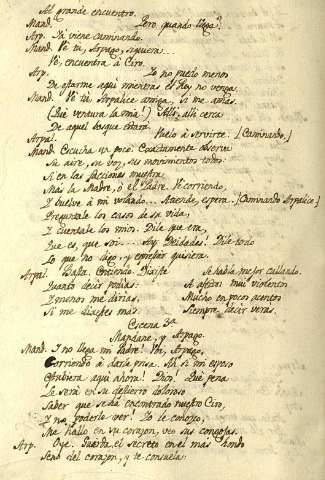 Al grande encuentro.
Mand. Pero quando llega?
Arp. Ya viene caminando.
Mand. Ve tu, Arpago, siquiera...
Ve, encuentra á Ciro.
Arp. Yo no puedo menos
De estarme aqui mientras el Rey no venga.
Mand. Ve tu, Arpalice amiga, si me amas.
(Que ventura la mia!) Alli, alli cerca
De aquel bosque estará
Arpal. Vuelo á servirte. [Caminando.]
Mand. Escucha un poco. Exactamente observa
Su aire, su voz, sus movimientos todos.
Si en las facciones muestra
Mas la Madre, ó el Padre. Ve corriendo,
Y vuelve á mi volando... Atiende, espera. [Caminando Arpalice]
Preguntale los casos de su vida,
Y cuentale los mios. Dile que era,
Que es, que soi... Soy Deidades! Dile todo
Lo que no digo, y expresar quisiera.
Arpal. Basta. Entiendo. Dixiste
Quanto decir podias.
Y menos me dirias,
Si me dixeses mas.
Se habla mejor callando.
A afectos mui violentos
Mucho en pocos acentos
Siempre, lucir veras.
Escena 3ª
Mandane, y Arpago.
Mand. Y no llega mi Padre! Ve, Arpago,
Corriendo á darle prisa. Ah si mi esposo
Estubiera aqui ahora! Dios! Que pena
Le será en su destierro doloroso
Saber que se ha encontrado nuestro Ciro,
Y no poderle ver! Yo le conozco,
Me hallo en su corazon, veo sus congojas.
Arp. Oye. Guarda el secreto en el mas hondo
Seno del corazon, y te consuela: